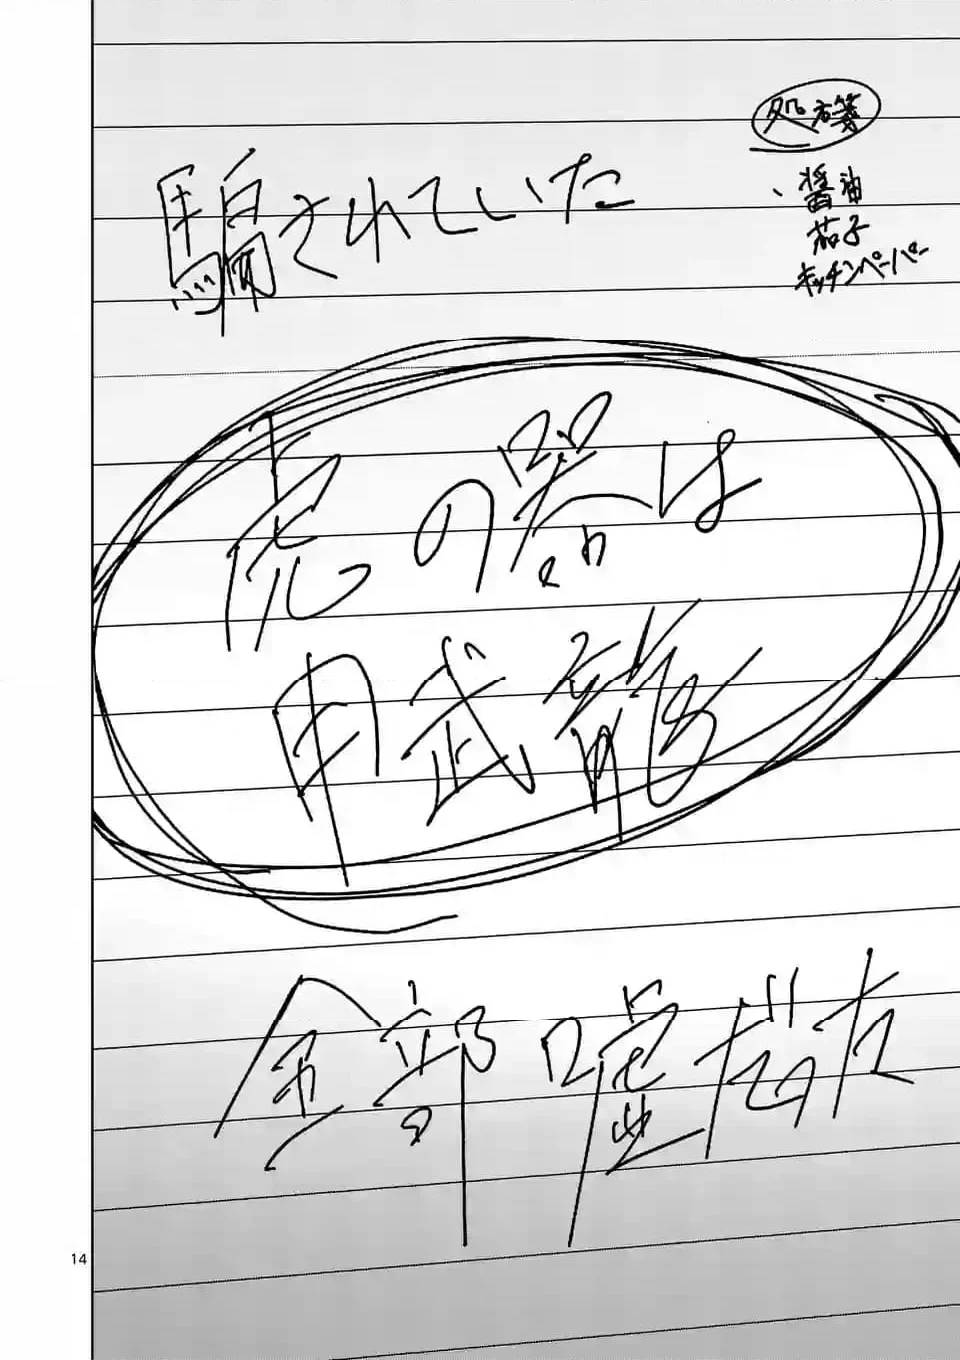 処方箋
醤油
茄子
キッチンペーパー
騙されていた
虎の器は
甲武龍
全部嘘だった
14